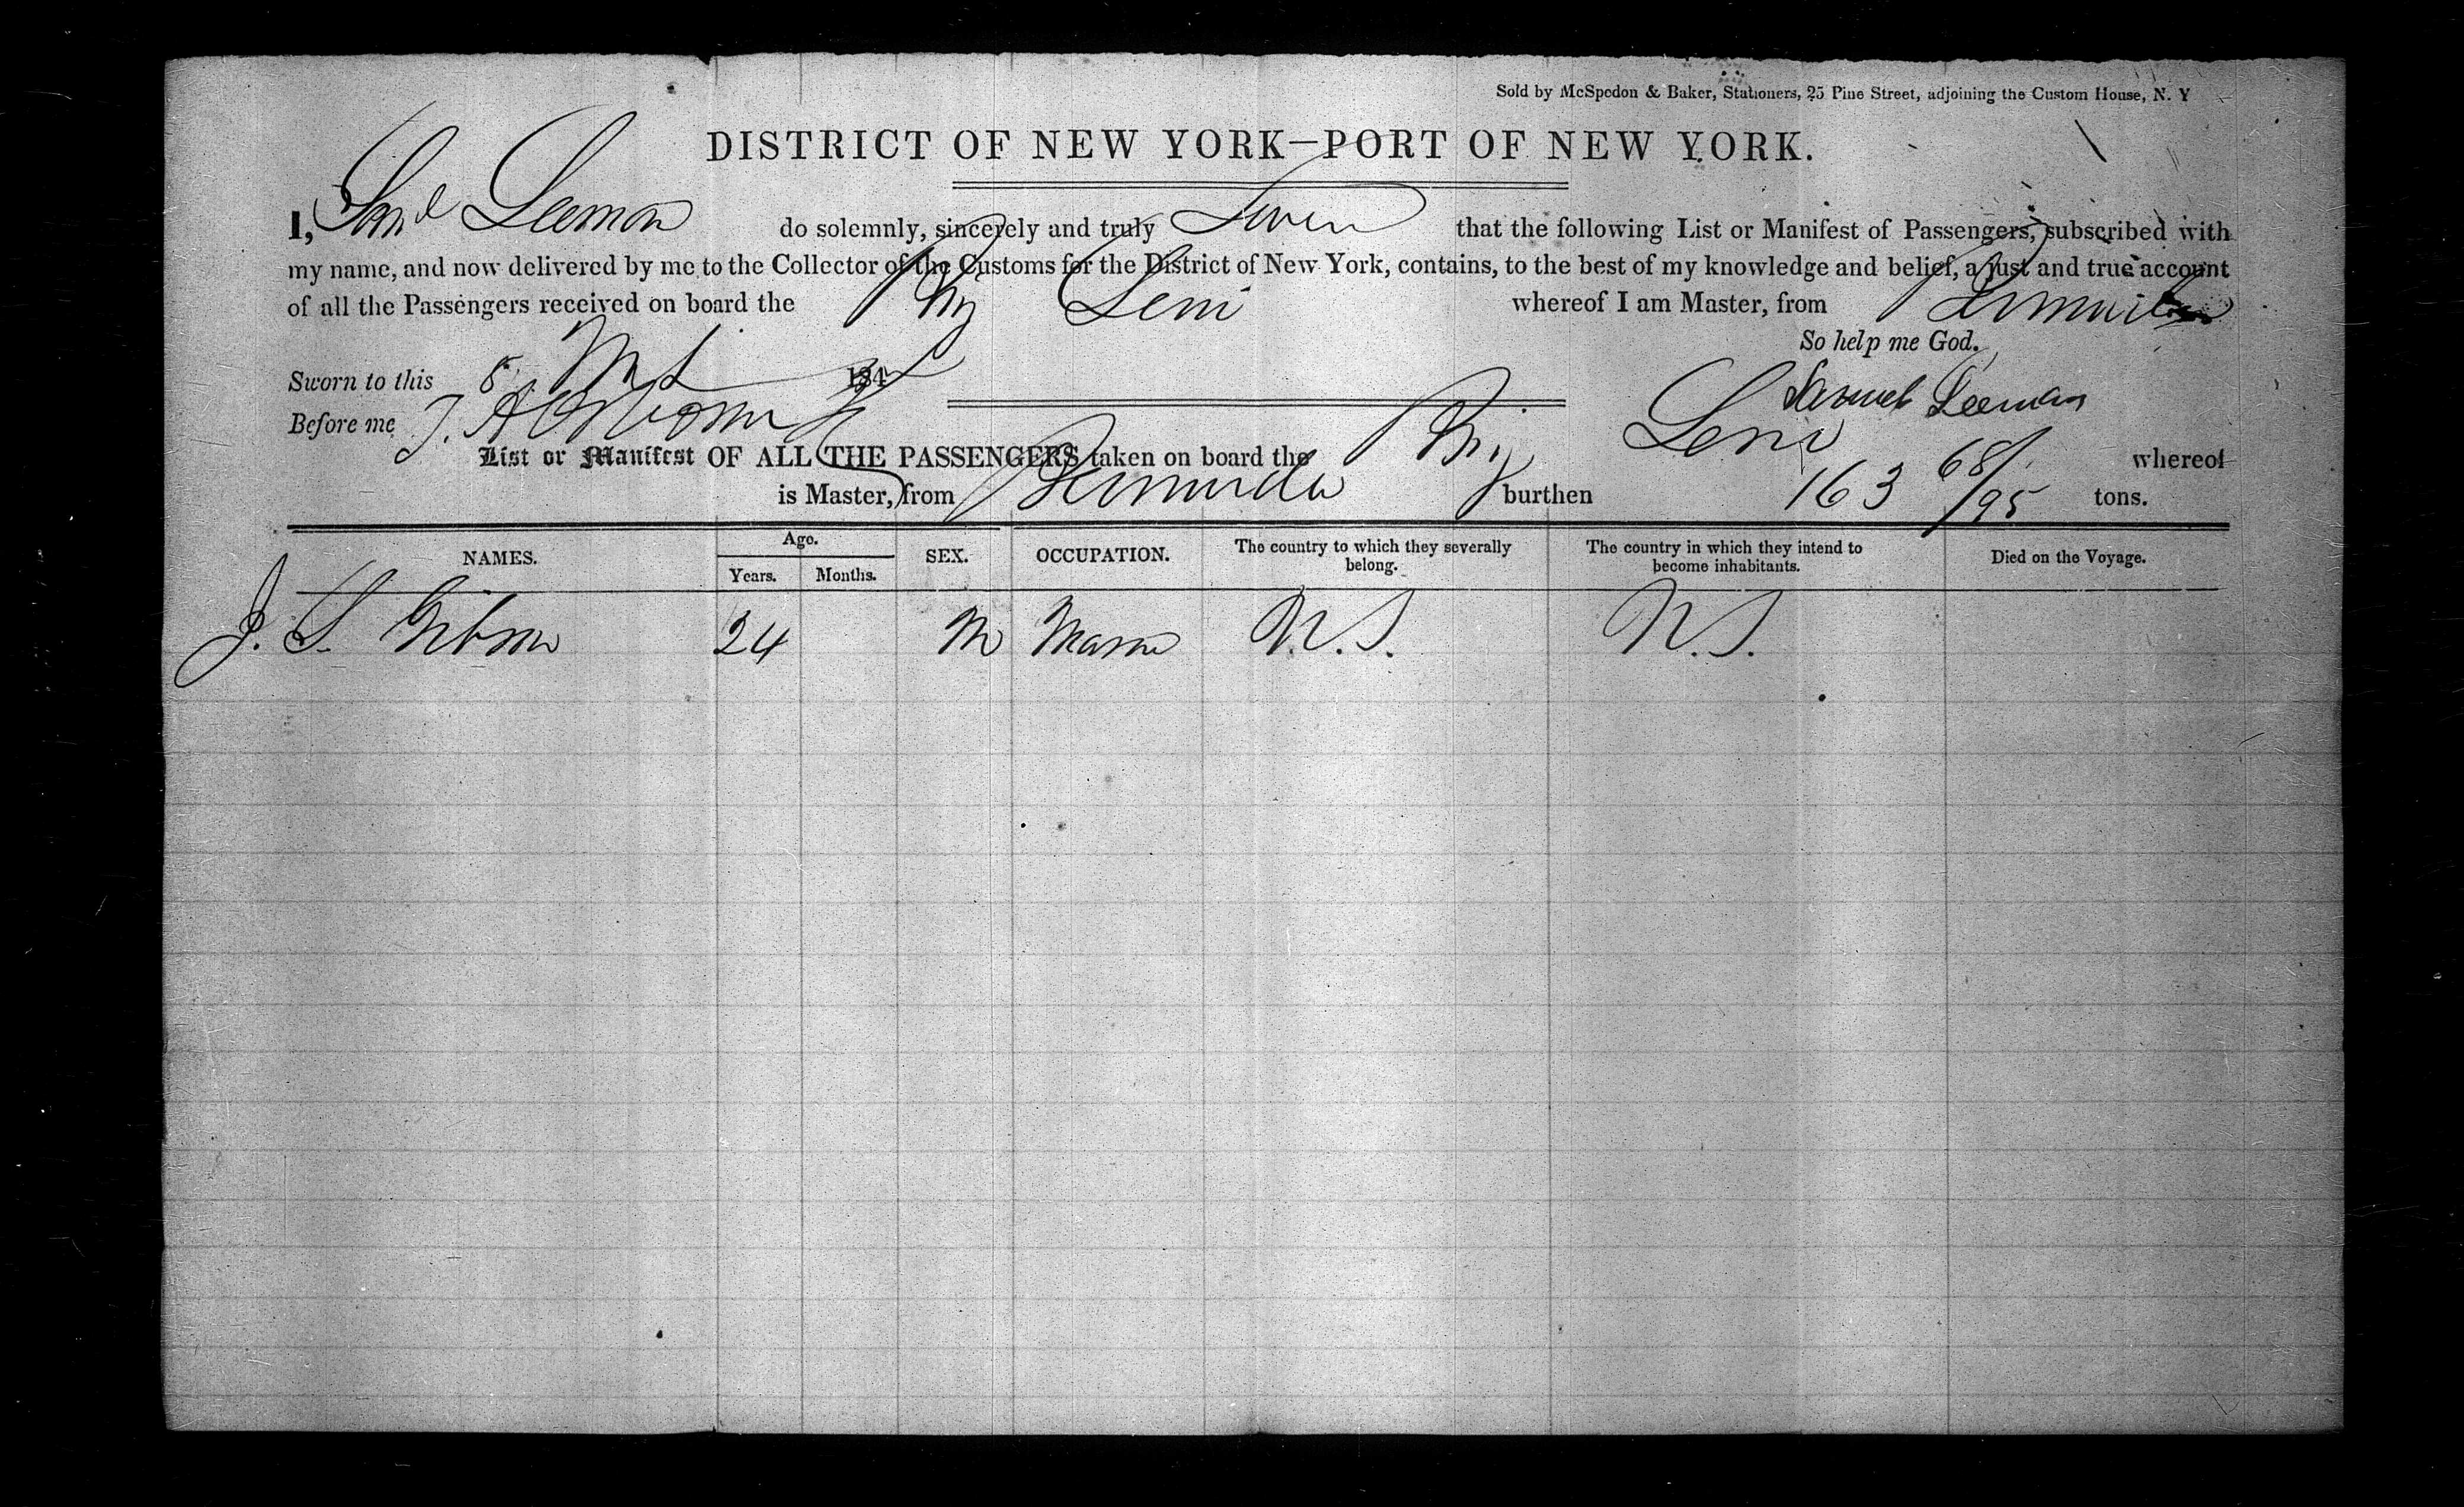 Sold by McSpedon & Baker, Stationers, 25 Pine Street, adjoining the Custom House, N. Y
DISTRICT OF NEW YORK—PORT OF NEW YORK.
I, Saml Leeman do solemnly, sincerely and truly Swear that the following List or Manifest of Passengers, subscribed with
my name, and now delivered by me to the Collector of the Customs for the District of New York, contains, to the best of my knowledge and belief, a just and true account
of all the Passengers received on board the Brig whereof I am Master, from Bermuda
So help me God.
Sworn to this 8 184
Samuel Leeman
Before me
List or Manifest OF ALL THE PASSENGERS taken on board the Brig whereof
is Master, from Bermuda burthen 163 68/95 tons.
NAMES. Age. SEX. OCCUPATION. The country to which they severally belong. The country in which they intend to become inhabitants. Died on the Voyage.
Years. Months.
J. S. Gibson 24 M Mason